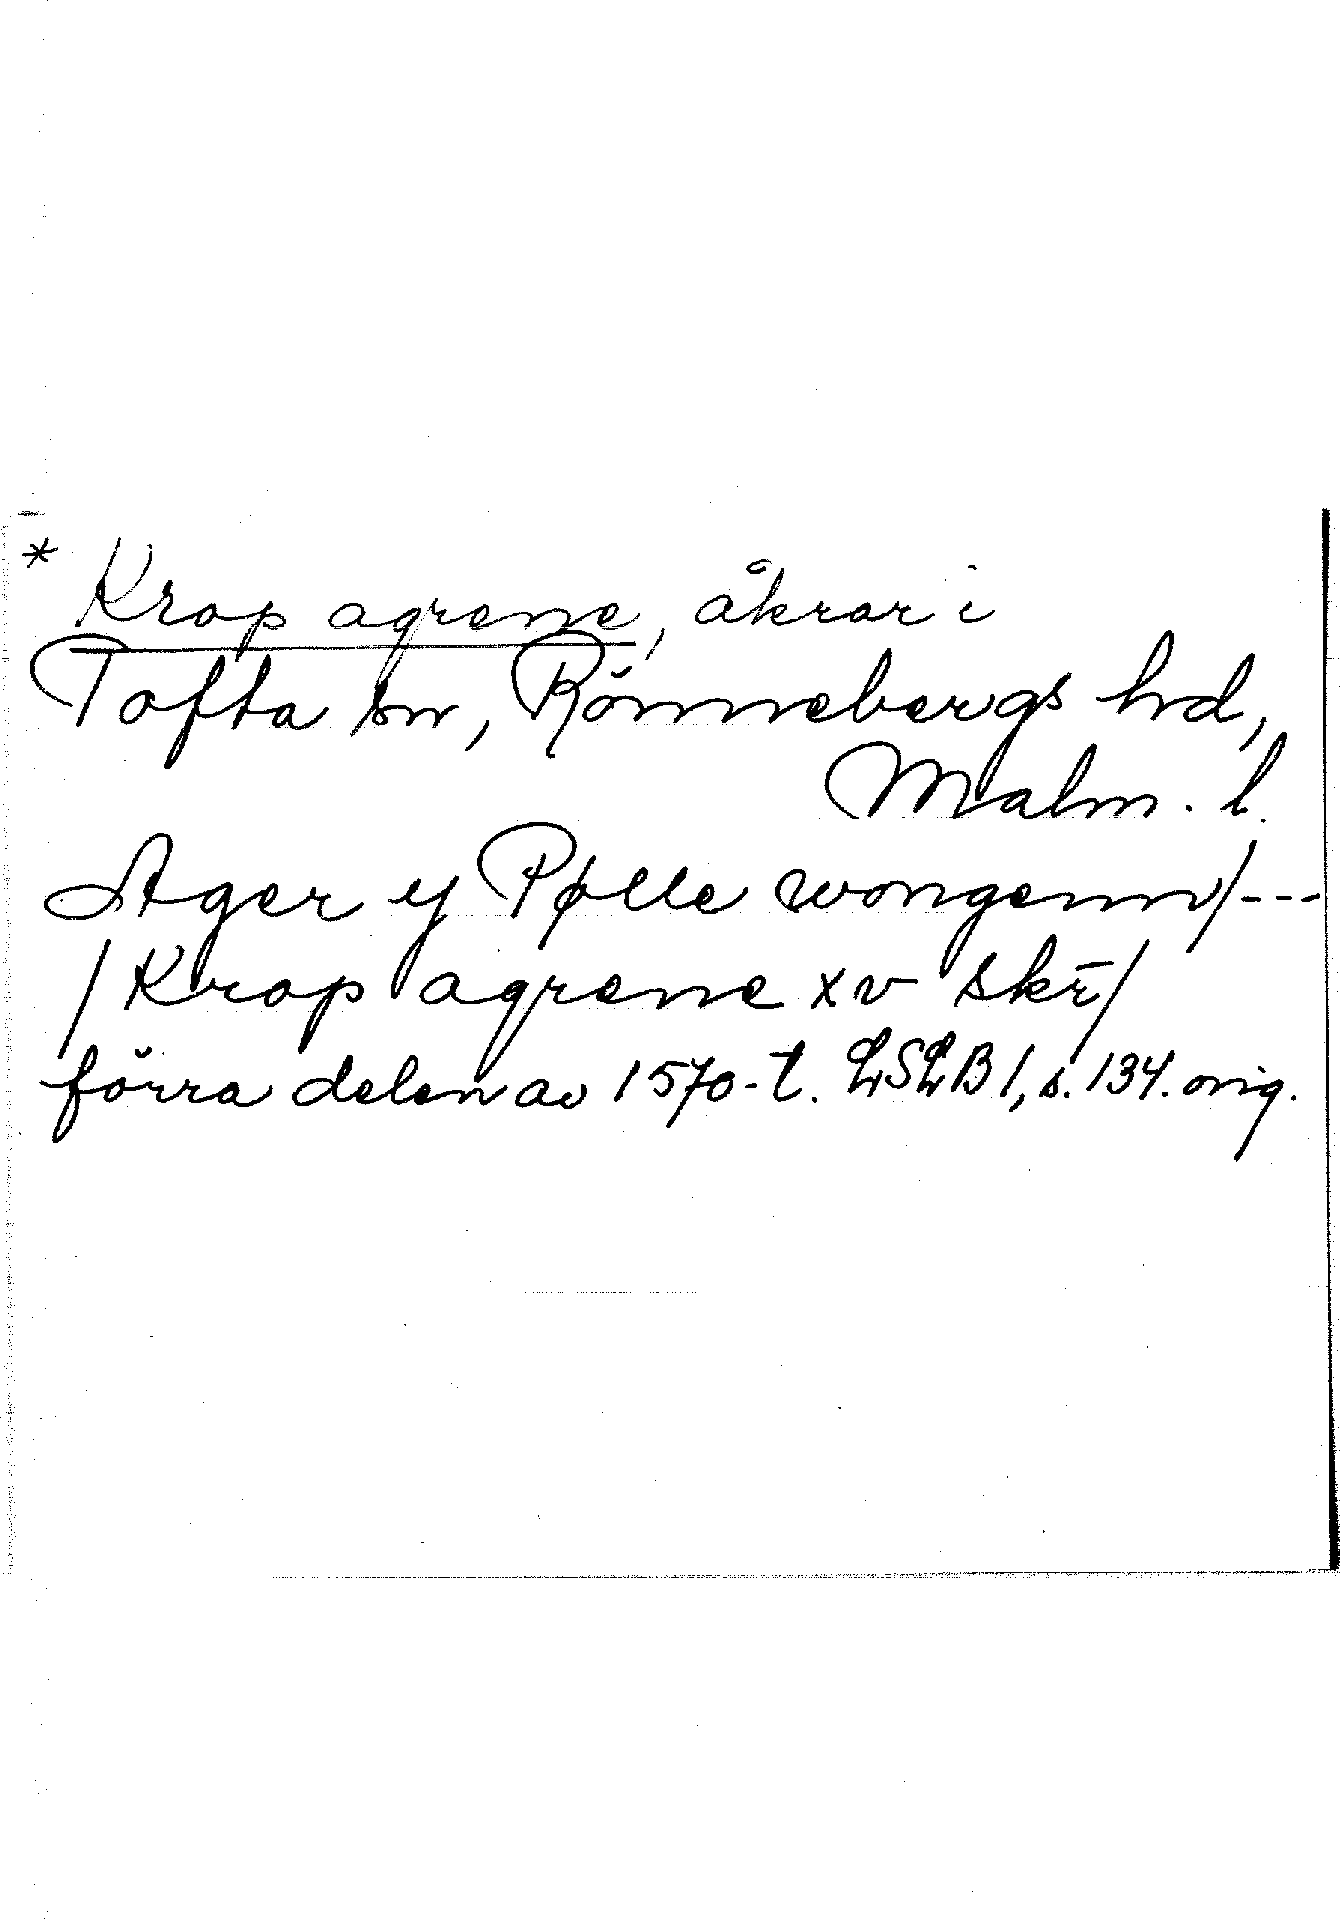 * Krop agrene, åkrar i
Tofta sn, Rönnebergs hd,
Malm. l.
Ager y Pølle wongenn/---
/Krop agrene xv skr̄/
förra delen av 1570-t. LSLB 1, s. 134. orig.